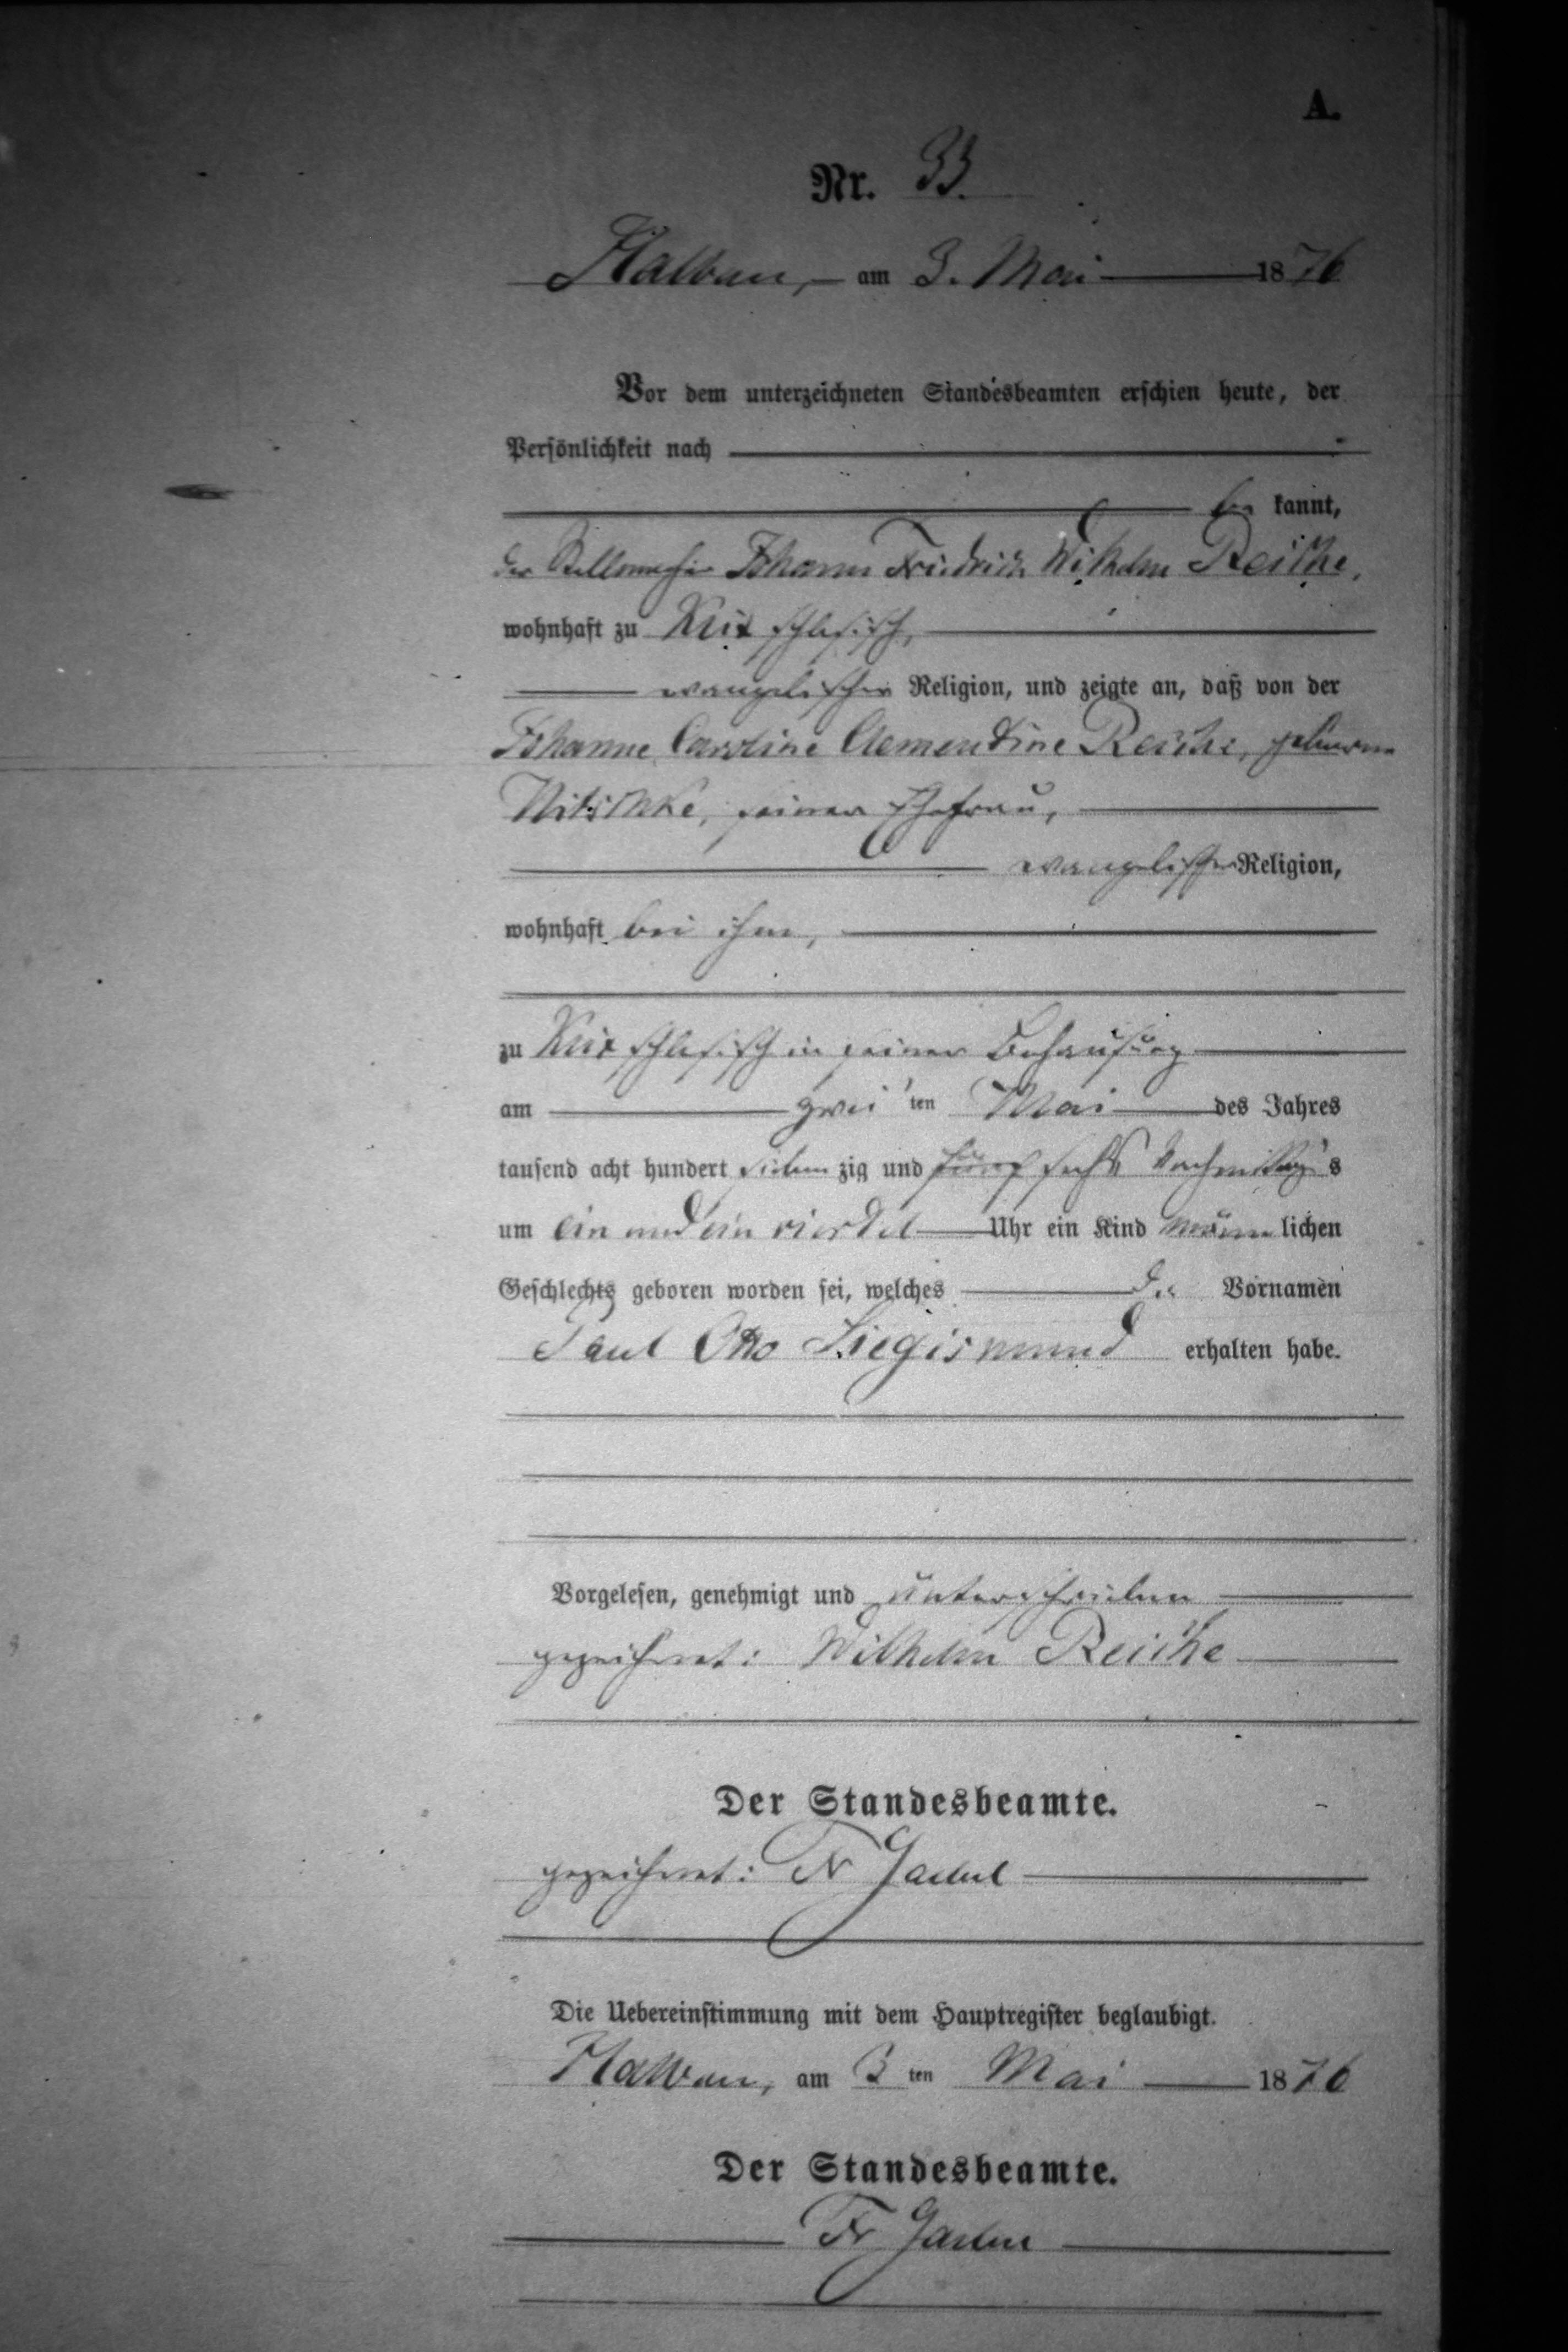 A.
Nr. 33.
Halbau, am 3. Mai 1876
Vor dem unterzeichneten Standesbeamten erschien heute, der
Persönlichkeit nach
be kannt,
der Johann Friedrich Wilhelm Reiche,
wohnhaft zu Kuix schlesisch,
evangelischer Religion, und zeigte an, daß von der
Johanne Caroline Clementine Reiche, geborene
Nitschke, seiner Ehefrau,
evangelischer Religion,
wohnhaft bei ihm,
zu Kuix schlesisch in seiner Behausung
am zwei ten Mai des Jahres
tausend acht hundert sieben zig und fünf sechs Nachmittags
um ein und ein viertel Uhr ein Kind männ lichen
Geschlechts geboren worden sei, welches die Vornamen
Paul Otto Siegismund erhalten habe.
Vorgelesen, genehmigt und unterschrieben
gezeichnet: Wilhelm Reiche
Der Standesbeamte.
gezeichnet: Fr
Die Uebereinstimmung mit dem Hauptregister beglaubigt.
Halbau, am 3 ten Mai 1876
Der Standesbeamte.
Fr